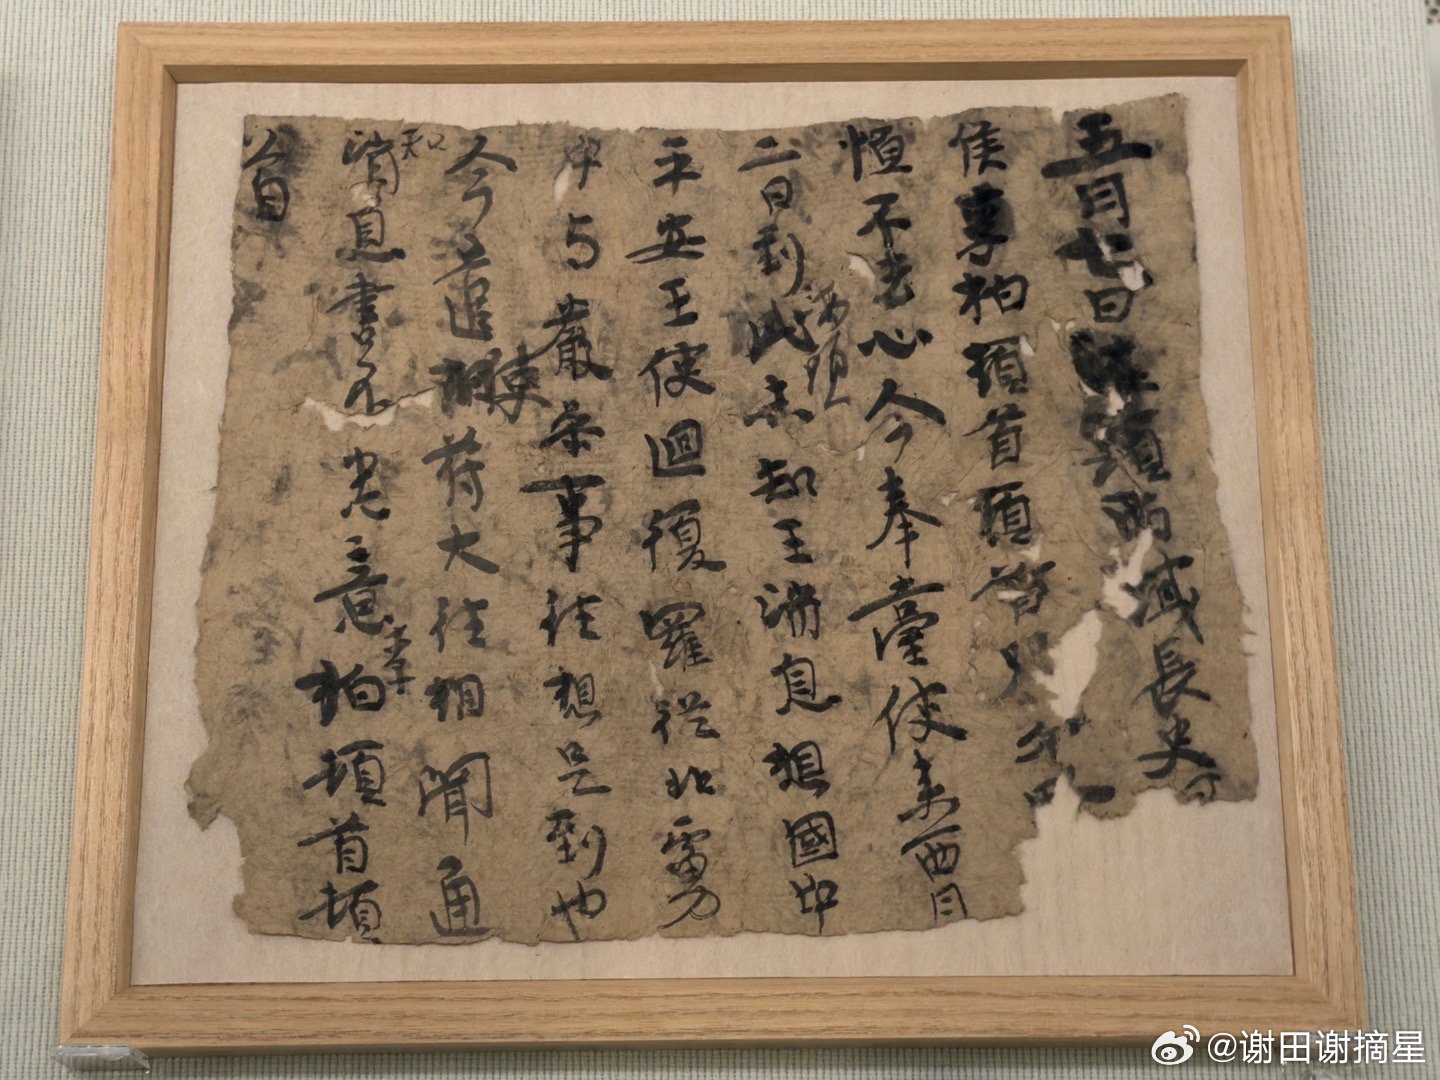 五月七日海頭西域長史
侯李柏頓首頓首
恒不去心今奉臺使來西月
二日到此海頭未知王消息想國中
平安王使迴復羅從北虜
中与嚴參事往想是到也
今遣使苻大往相聞通
知消息書不悉意李柏頓首頓
首
@谢田谢摘星